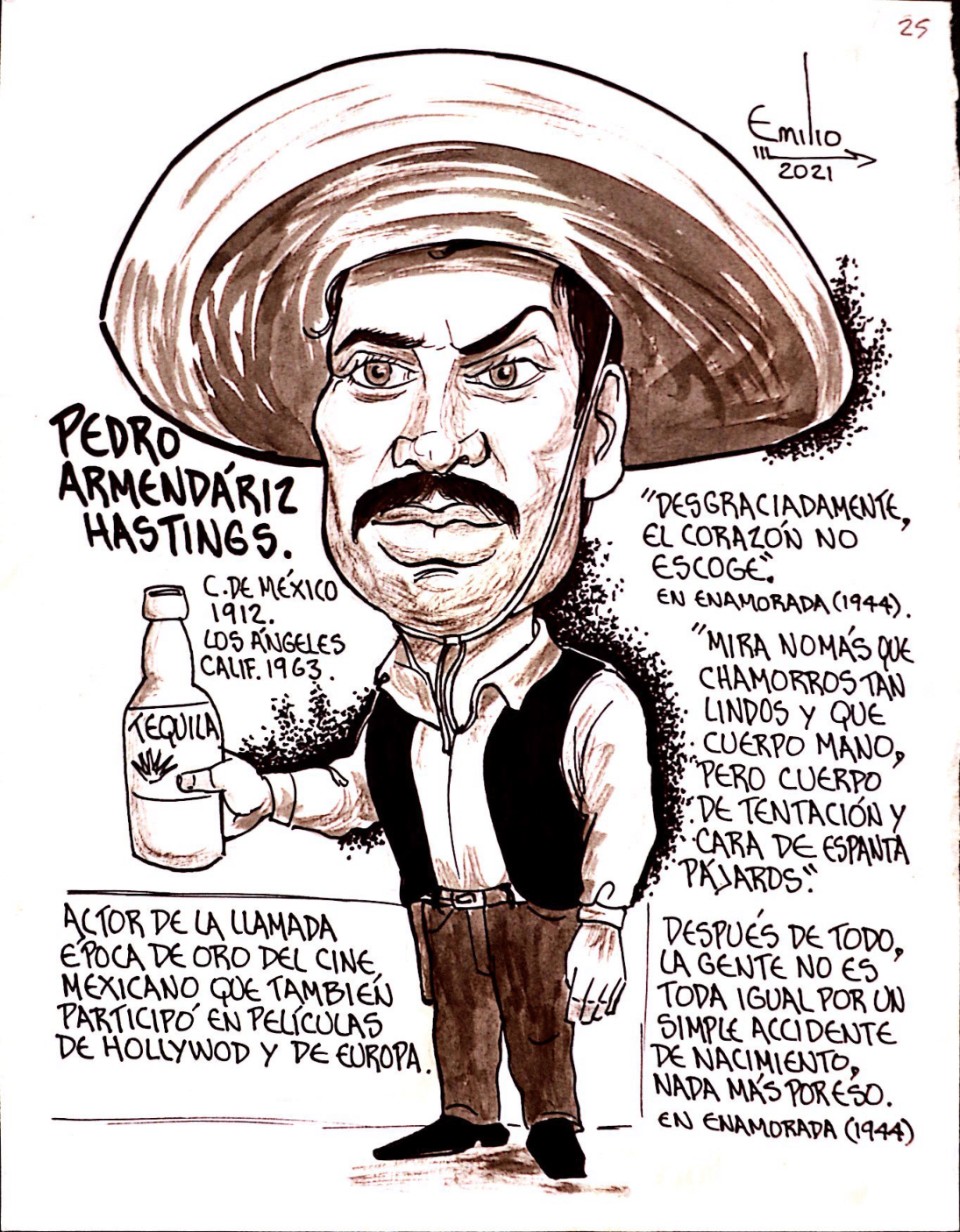 25
Emilio
2021
PEDRO
ARMENDÁRIZ
HASTINGS.
C. DE MÉXICO
1912.
LOS ÁNGELES
CALIF. 1963.
TEQUILA
ACTOR DE LA LLAMADA
ÉPOCA DE ORO DEL CINE
MEXICANO QUE TAMBIÉN
PARTICIPÓ EN PELÍCULAS
DE HOLLYWOD Y DE EUROPA.
"DESGRACIADAMENTE,
EL CORAZÓN NO
ESCOGE".
EN ENAMORADA (1944).
"MIRA NOMÁS QUE
CHAMORROS TAN
LINDOS Y QUE
CUERPO MANO,
PERO CUERPO
DE TENTACIÓN Y
CARA DE ESPANTA
PÁJAROS".
DESPUÉS DE TODO,
LA GENTE NO ES
TODA IGUAL POR UN
SIMPLE ACCIDENTE
DE NACIMIENTO,
NADA MÁS POR ESO.
EN ENAMORADA (1944)